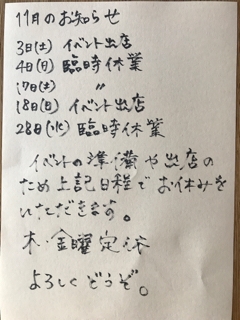 11月のお知らせ
3日(土) イベント出店
4日(日) 臨時休業
17日(土) 〃
18日(日) イベント出店
28日(水) 臨時休業
イベントの準備や出店の
ため上記日程でお休みを
いただきます。
木・金曜定休
よろしくどうぞ。